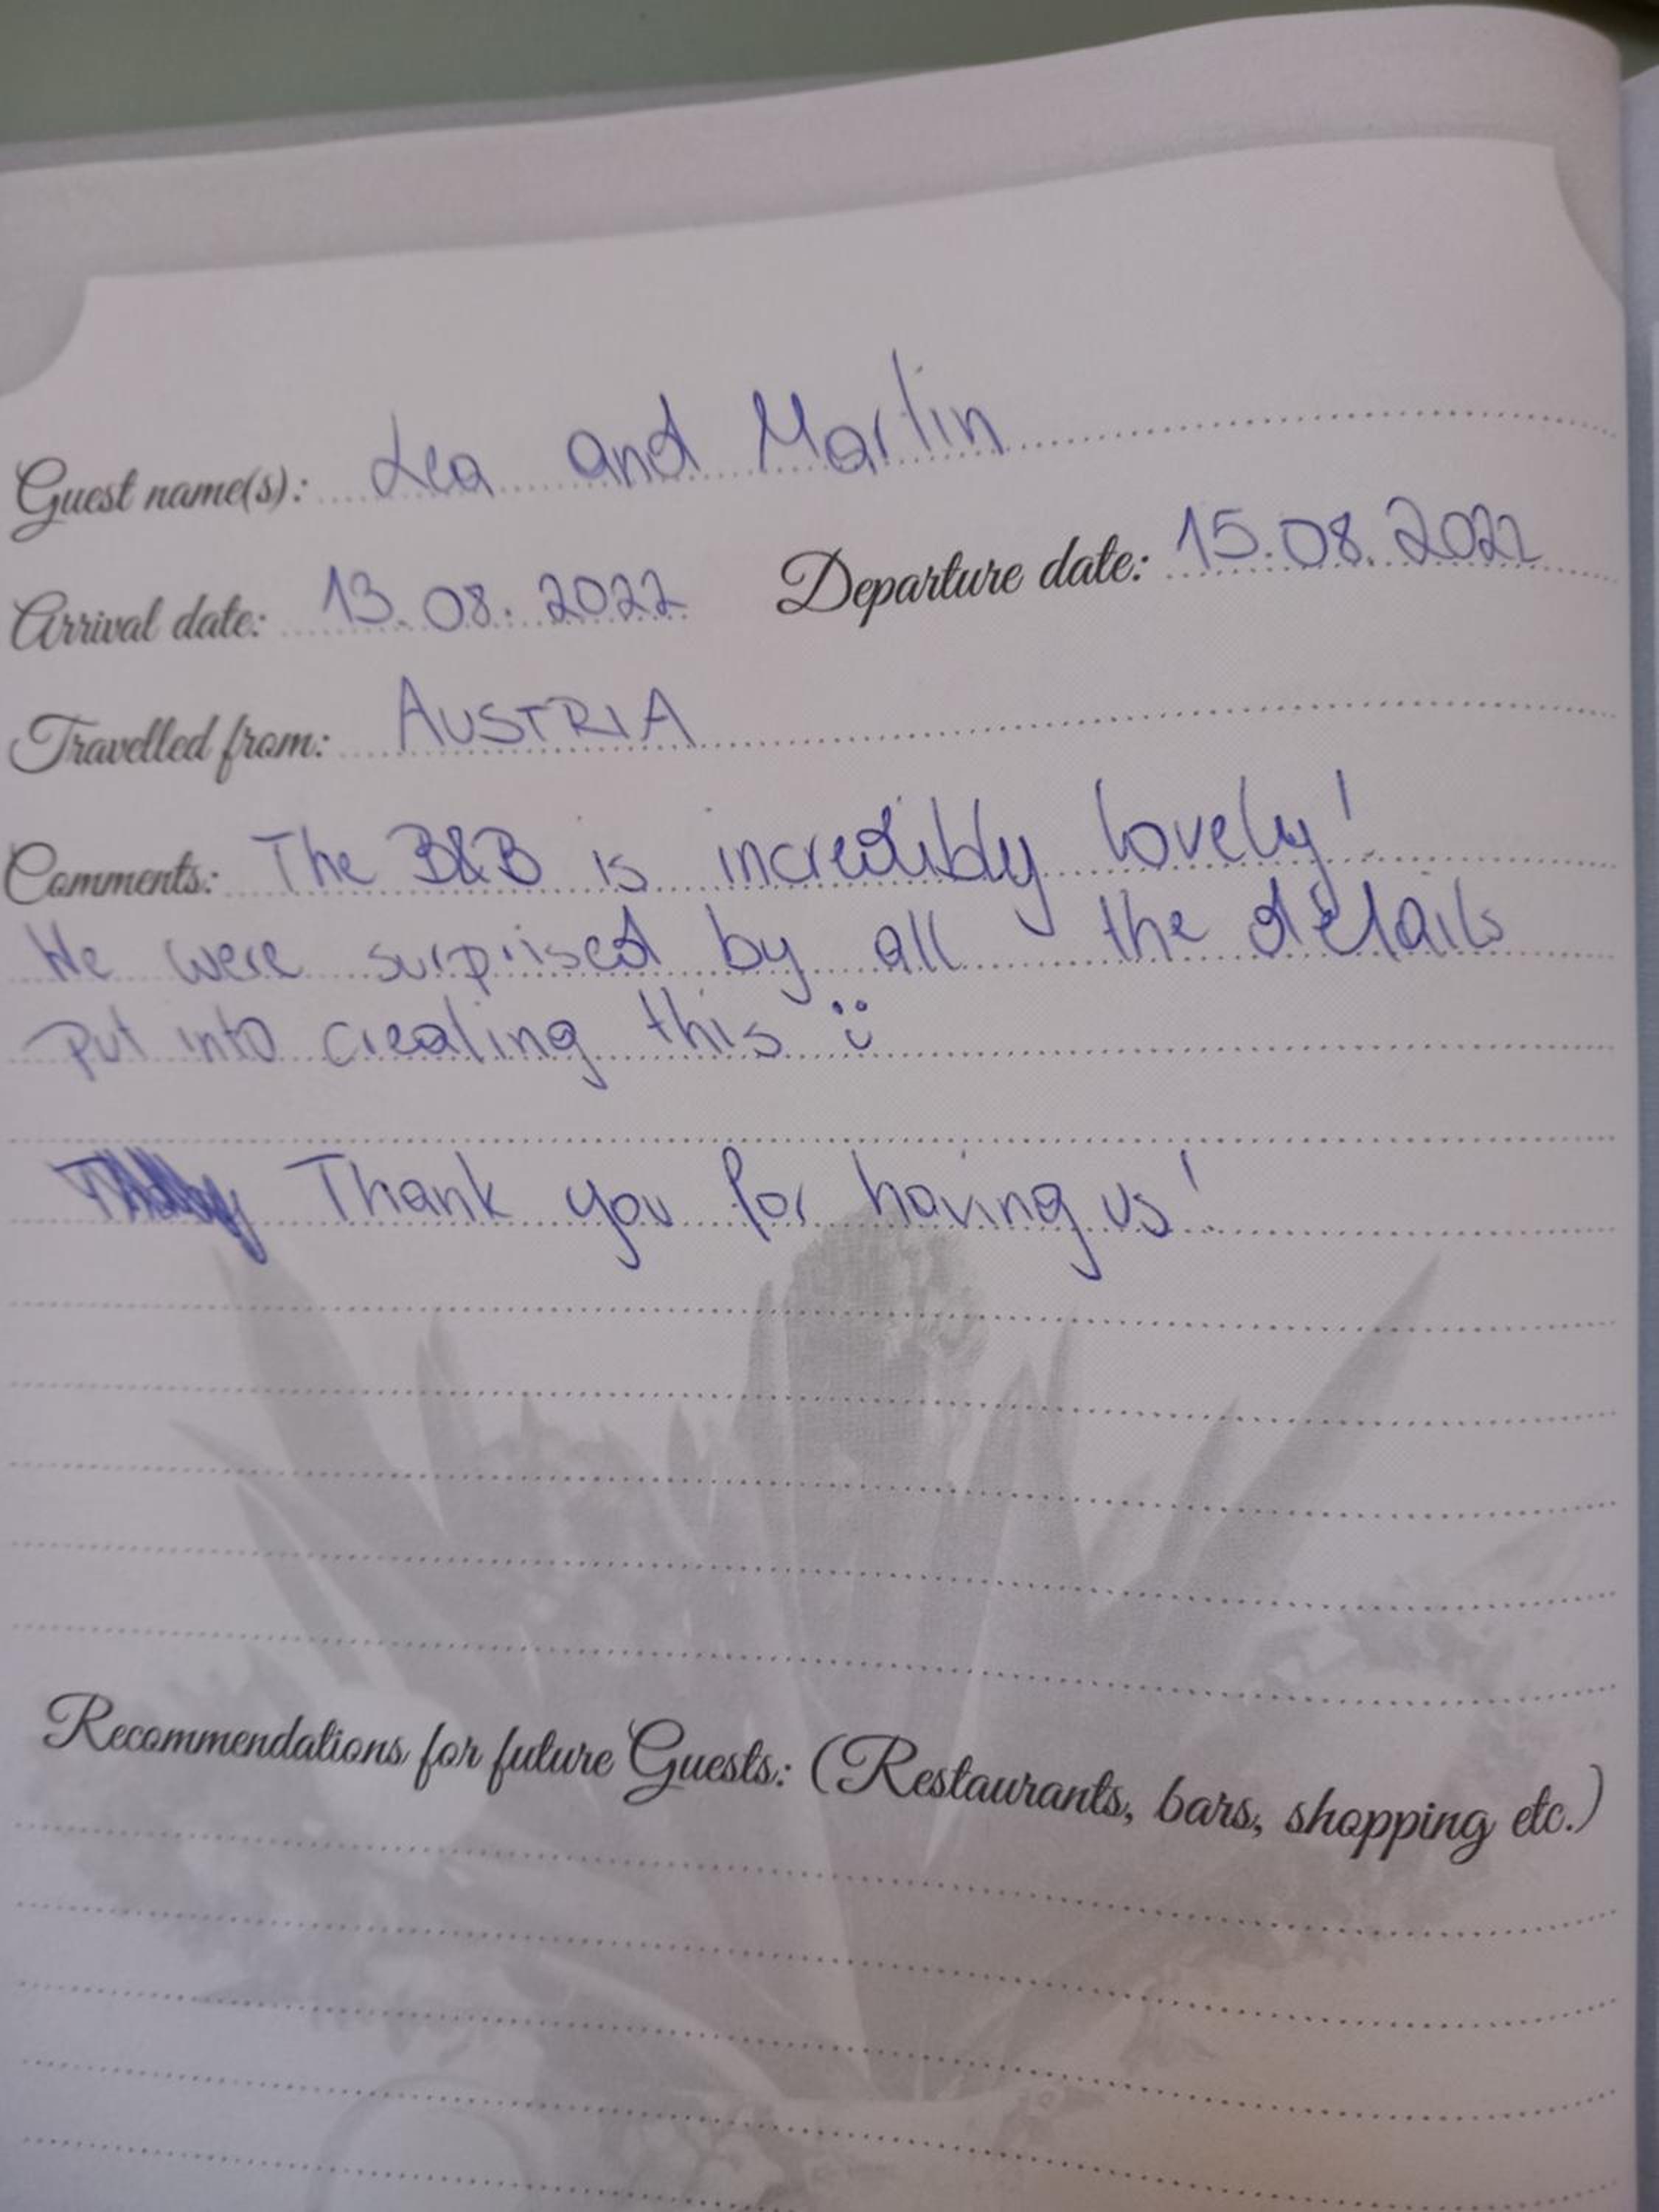 Guest name(s): Lea and Martin
Arrival date: 13.08.2022 Departure date: 15.08.2022
Travelled from: AUSTRIA
Comments: The B&B is incredibly lovely!
We were surprised by all the details
put into creating this :)
Thank you for having us!
Recommendations for future Guests: (Restaurants, bars, shopping etc.)